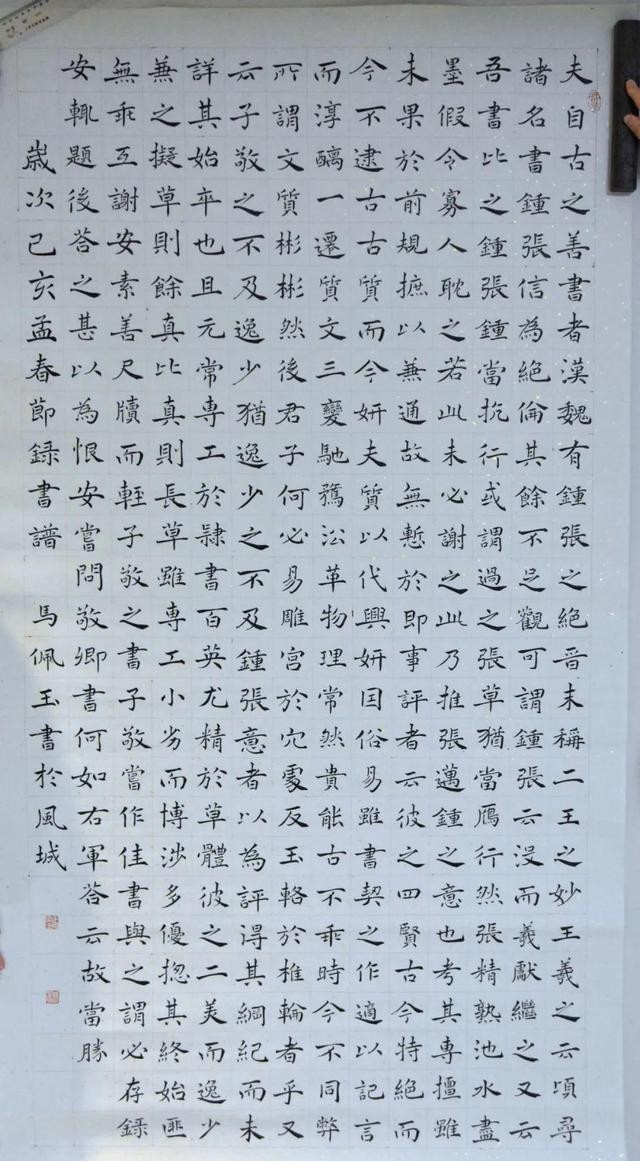 夫自古之善書者漢魏有鍾張之絕晉末稱二王之妙王羲之云頃尋
諸名書鍾張信為絕倫其餘不足觀可謂鍾張云沒而羲獻繼之又云
吾書比之鍾張鍾當抗行或謂過之張草猶當鴈行然張精熟池水盡
墨假令寡人耽之若此未必謝之此乃推張邁鍾之意也考其專擅雖
未果於前規摭以兼通故無慙於即事評者云彼之四賢古今特絕而
今不逮古古質而今妍夫質以代興妍因俗易雖書契之作適以記言
而淳醨一遷質文三變馳騖沿革物理常然貴能古不乖時今不同弊
所謂文質彬彬然後君子何必易雕宮於穴處反玉輅於椎輪者乎又
云子敬之不及逸少猶逸少之不及鍾張意者以為評得其綱紀而未
詳其始卒也且元常專工於隸書百英尤精於草體彼之二美而逸少
兼之擬草則餘真比真則長草雖專工小劣而博涉多優揔其終始匪
無乖互謝安素善尺牘而輕子敬之書子敬嘗作佳書與之謂必存錄
安輒題後答之甚以為恨安嘗問敬卿書何如右軍答云故當勝
歲次己亥孟春節錄書譜 馬佩玉書於風城